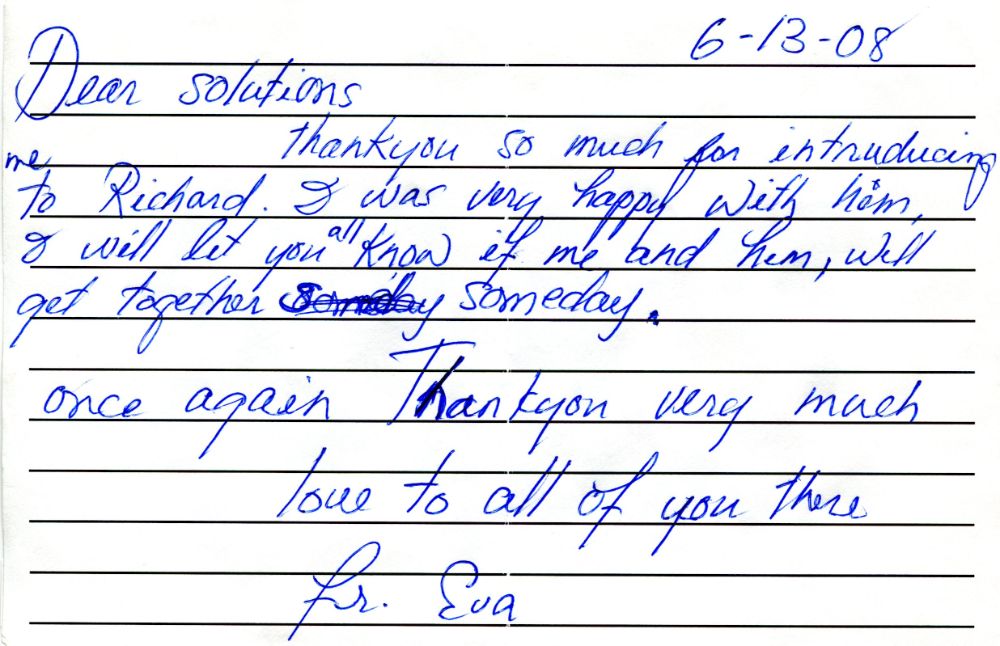 6-13-08
Dear solutions
thankyou so much for intruducing
me
to Richard. I was very happy with him,
I will let you all know if me and him, will
get together someday someday.
once again Thankyou very much
love to all of you there
fr. Eva